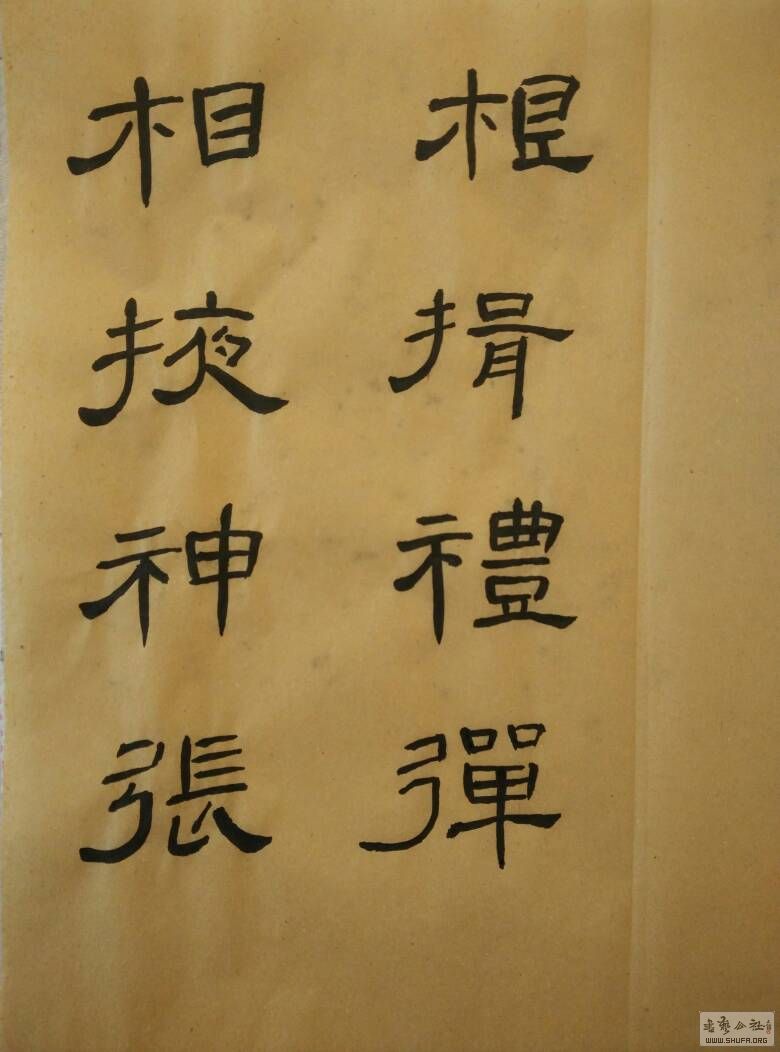 揖禮彈
相掖神張
書藝公社
WWW.SHUFA.ORG